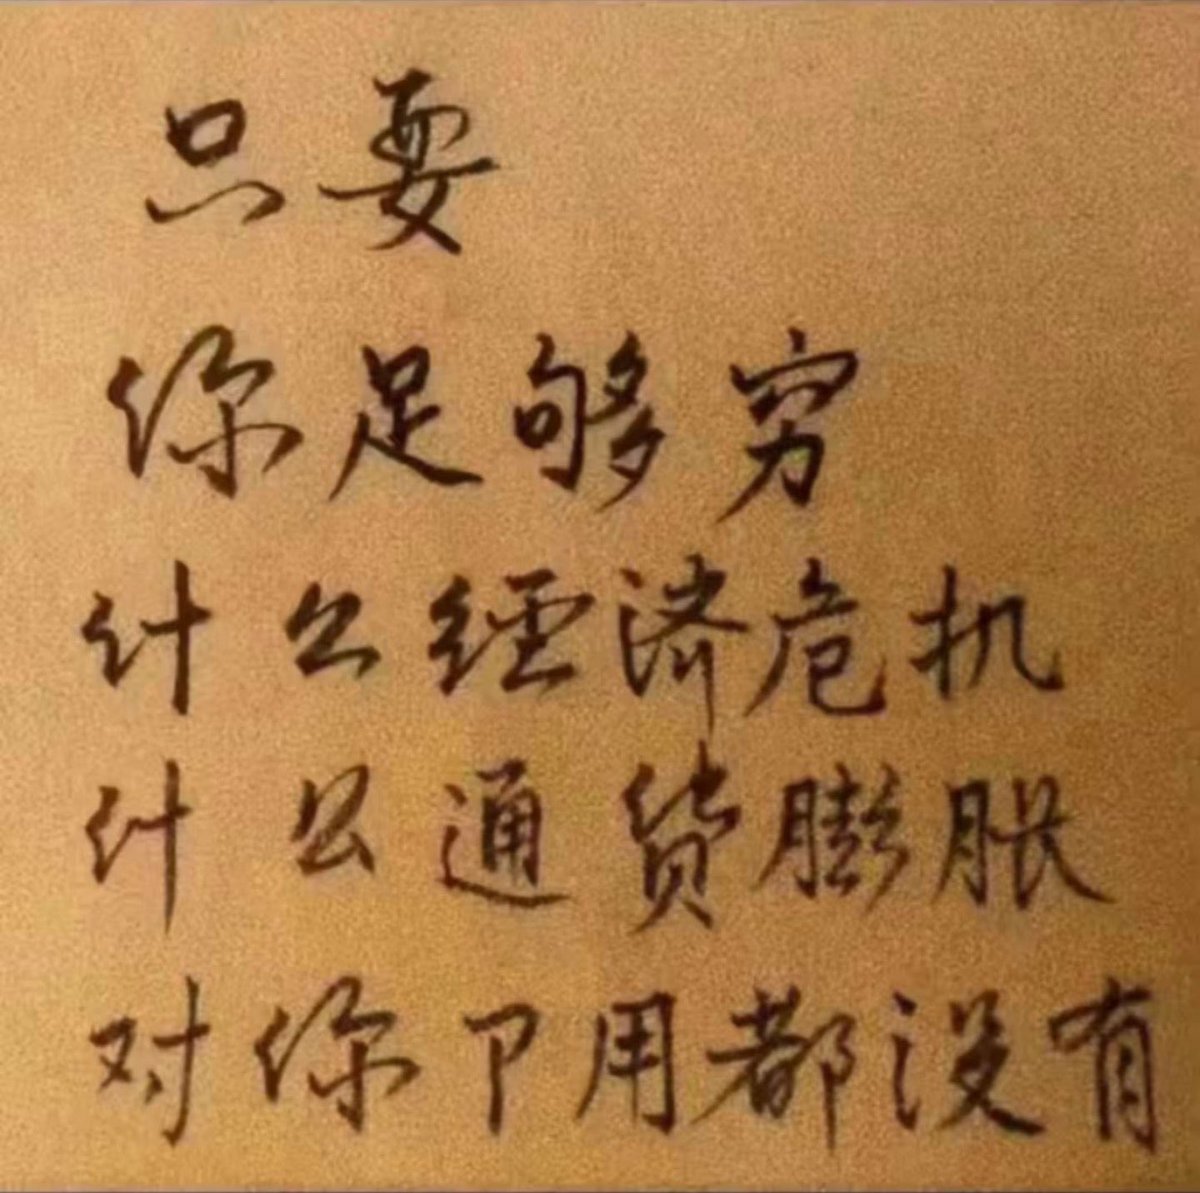 只要
你足够穷
什么经济危机
什么通货膨胀
对你卩用都没有